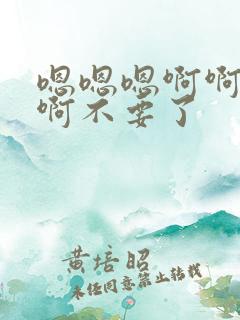 嗯嗯嗯啊啊
啊不要了
黄培昭
未经同意禁止转载